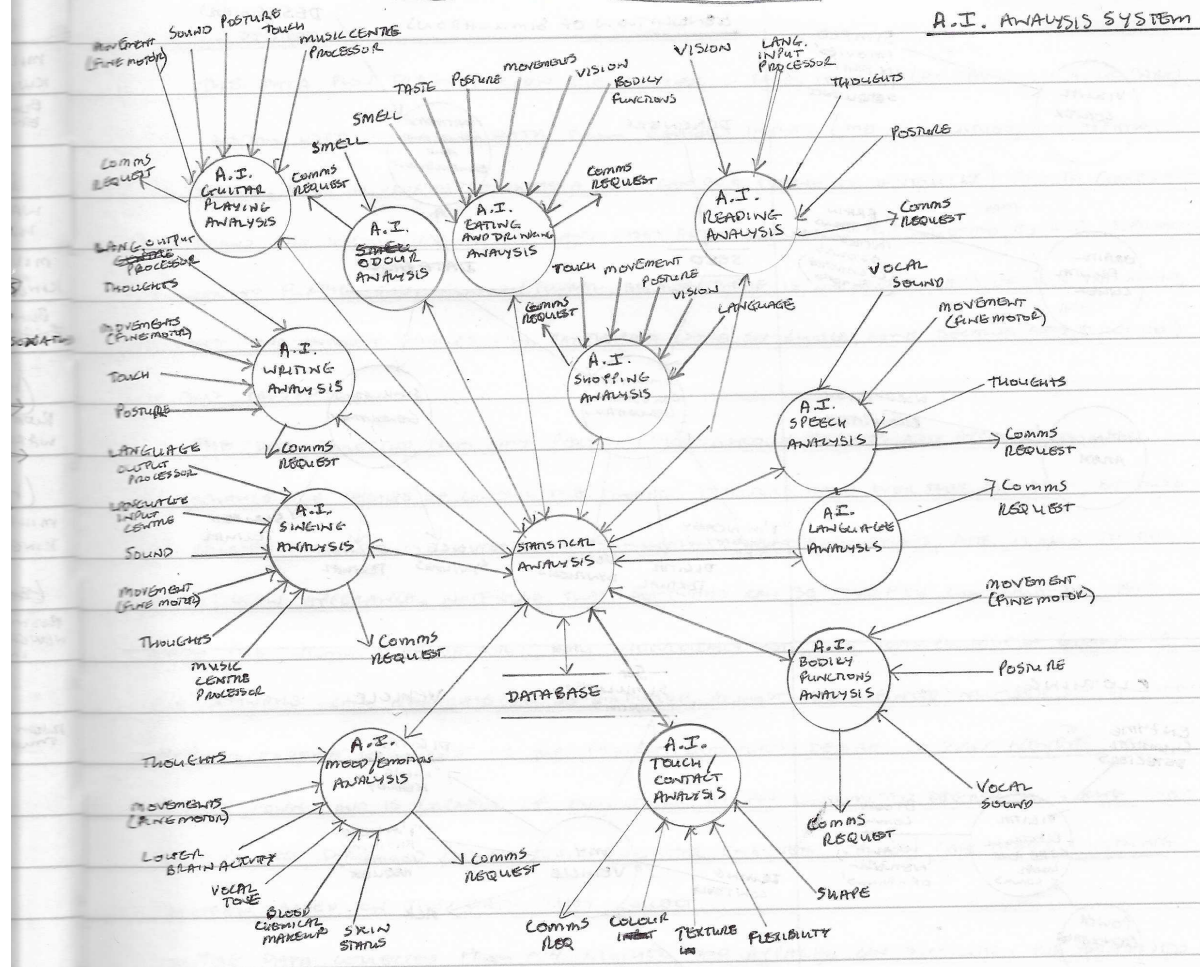 A.I. ANALYSIS SYSTEM
MOVEMENT
(FINE MOTOR)
SOUND
POSTURE
TOUCH
MUSIC CENTRE
PROCESSOR
COMMS
REQUEST
A.I.
GUITAR
PLAYING
ANALYSIS
SMELL
COMMS
REQUEST
A.I.
SMELL
ODOUR
ANALYSIS
SMELL
TASTE
POSTURE
MOVEMENTS
VISION
BODILY
FUNCTIONS
COMMS
REQUEST
A.I.
EATING
AND DRINKING
ANALYSIS
VISION
LANG.
INPUT
PROCESSOR
THOUGHTS
POSTURE
COMMS
REQUEST
A.I.
READING
ANALYSIS
LANG. OUTPUT
CENTRE
PROCESSOR
THOUGHTS
MOVEMENTS
(FINE MOTOR)
TOUCH
POSTURE
COMMS
REQUEST
A.I.
WRITING
ANALYSIS
TOUCH
MOVEMENT
POSTURE
VISION
LANGUAGE
COMMS
REQUEST
A.I.
SHOPPING
ANALYSIS
VOCAL
SOUND
MOVEMENT
(FINE MOTOR)
THOUGHTS
COMMS
REQUEST
A.I.
SPEECH
ANALYSIS
LANGUAGE
OUTPUT
PROCESSOR
LANGUAGE
INPUT
CENTRE
SOUND
MOVEMENT
(FINE MOTOR)
THOUGHTS
MUSIC
CENTRE
PROCESSOR
COMMS
REQUEST
A.I.
SINGING
ANALYSIS
STATISTICAL
ANALYSIS
COMMS
REQUEST
A.I.
LANGUAGE
ANALYSIS
DATABASE
MOVEMENT
(FINE MOTOR)
POSTURE
VOCAL
SOUND
COMMS
REQUEST
A.I.
BODILY
FUNCTIONS
ANALYSIS
THOUGHTS
MOVEMENTS
(FINE MOTOR)
LOWER
BRAIN ACTIVITY
VOCAL
TONE
BLOOD
CHEMICAL
MAKEUP
SKIN
STATUS
COMMS
REQUEST
A.I.
MOOD/EMOTION
ANALYSIS
A.I.
TOUCH/
CONTACT
ANALYSIS
COMMS
REQ
COLOUR
TEXTURE
FLEXIBILITY
SHAPE